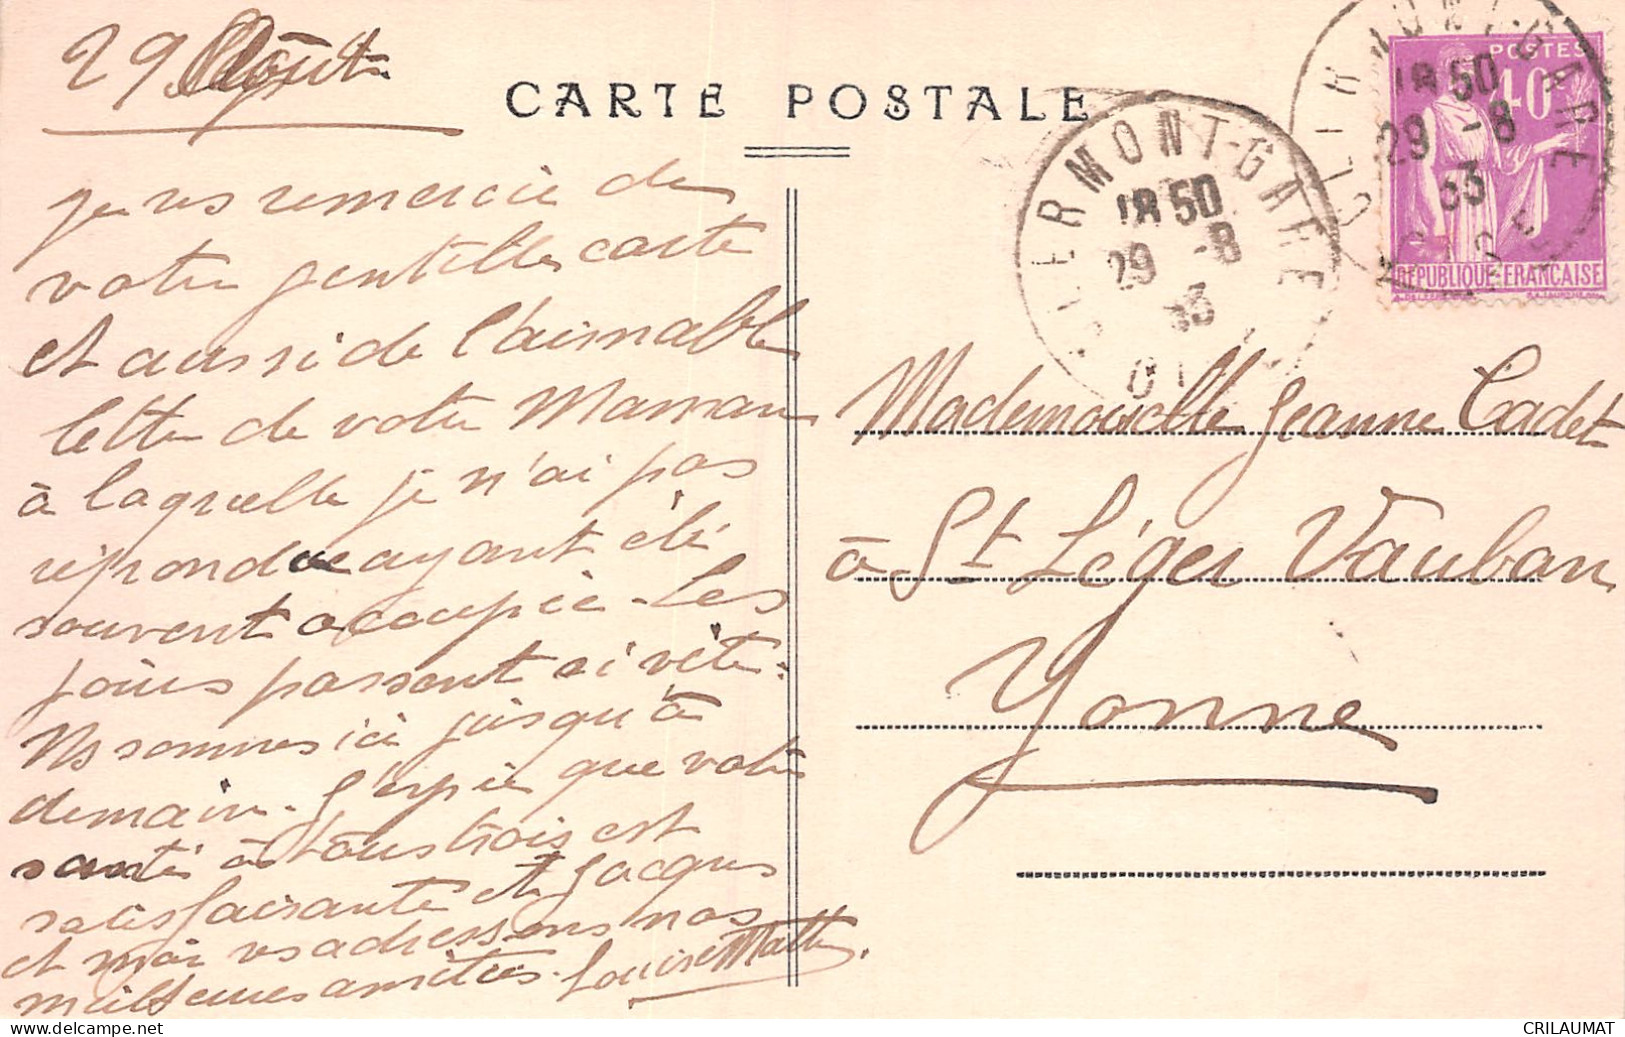 29 Août
CARTE POSTALE
je vs remercie de
votre gentille carte
et aussi de l'aimable
lettre de votre Maman
à laquelle je n'ai pas
répondu ayant été
souvent occupée. Les
jours passent si vite.
Ns sommes ici jusqu'à
demain. J'espère que votre
santé à tous trois est
satisfaisante et Jacques
et moi vs adressons nos
meilleures amitiés. Louise
CLERMONT-GARE
18 50
29 -8
33
OISE
CLERMONT-GARE
18 50
29 -8
33
OISE
POSTES
40
REPUBLIQUE FRANÇAISE
Mademoiselle Jeanne Cadet
à St Léger Vauban
Yonne
CRILAUMAT